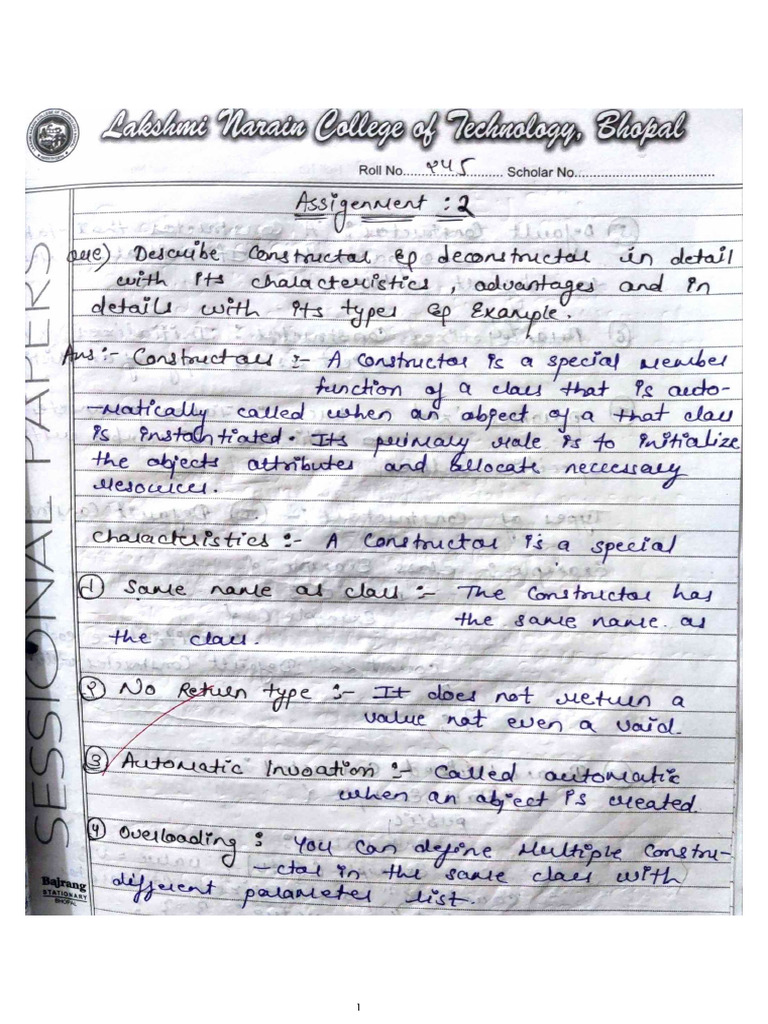 Lakshmi Narain College of Technology, Bhopal
Roll No.............245......... Scholar No...................................
Assigenment : 2
Que) Describe Constructor & deconstructor in detail
with its characteristics, advantages and in
details with its types & Example.
Ans :- Constructors :- A constructor is a special member
function of a class that is auto-
-matically called when an object of a that class
is instantiated. Its primary role is to initialize
the objects attributes and allocate neccessary
resources.
Characteristics :- A constructor is a special
① Same name as class :- The constructor has
the same name as
the class.
② No Return type :- It does not return a
value not even a void.
③ Automatic Invoation :- Called automatic
when an object is created.
④ Overloading : You can define multiple constru-
-ctor in the same class with
different parameter list.
SESSIONAL PAPERS
Bajrang
STATIONARY
BHOPAL
1